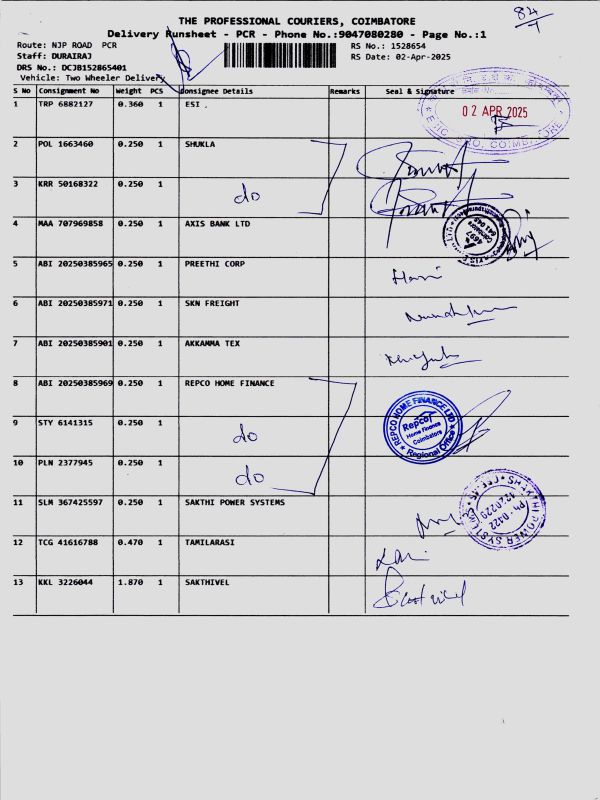 84/1
THE PROFESSIONAL COURIERS, COIMBATORE
Delivery Runsheet - PCR - Phone No.:9047080280 - Page No.:1
Route: NJP ROAD PCR
RS No.: 1528654
Staff: DURAIRAJ
RS Date: 02-Apr-2025
DRS No.: DCJB152865401
Vehicle: Two Wheeler Delivery
S No Consignment No Weight PCS Consignee Details Remarks Seal & Signature
1 TRP 6882127 0.360 1 ESI .
02 APR 2025
2 POL 1663460 0.250 1 SHUKLA
3 KRR 50168322 0.250 1 do
4 MAA 707969858 0.250 1 AXIS BANK LTD
5 ABI 20250385965 0.250 1 PREETHI CORP
6 ABI 20250385971 0.250 1 SKN FREIGHT
7 ABI 20250385901 0.250 1 AKKAMMA TEX
8 ABI 20250385969 0.250 1 REPCO HOME FINANCE
REPCO HOME FINANCE LTD
Repco
Home Finance
Coimbatore
Regional Office
9 STY 6141315 0.250 1 do
10 PLN 2377945 0.250 1 do
11 SLM 367425597 0.250 1 SAKTHI POWER SYSTEMS
SHAKTHI POWER SYSTEMS
Ph - 0422
4220229
12 TCG 41616788 0.470 1 TAMILARASI
13 KKL 3226044 1.870 1 SAKTHIVEL